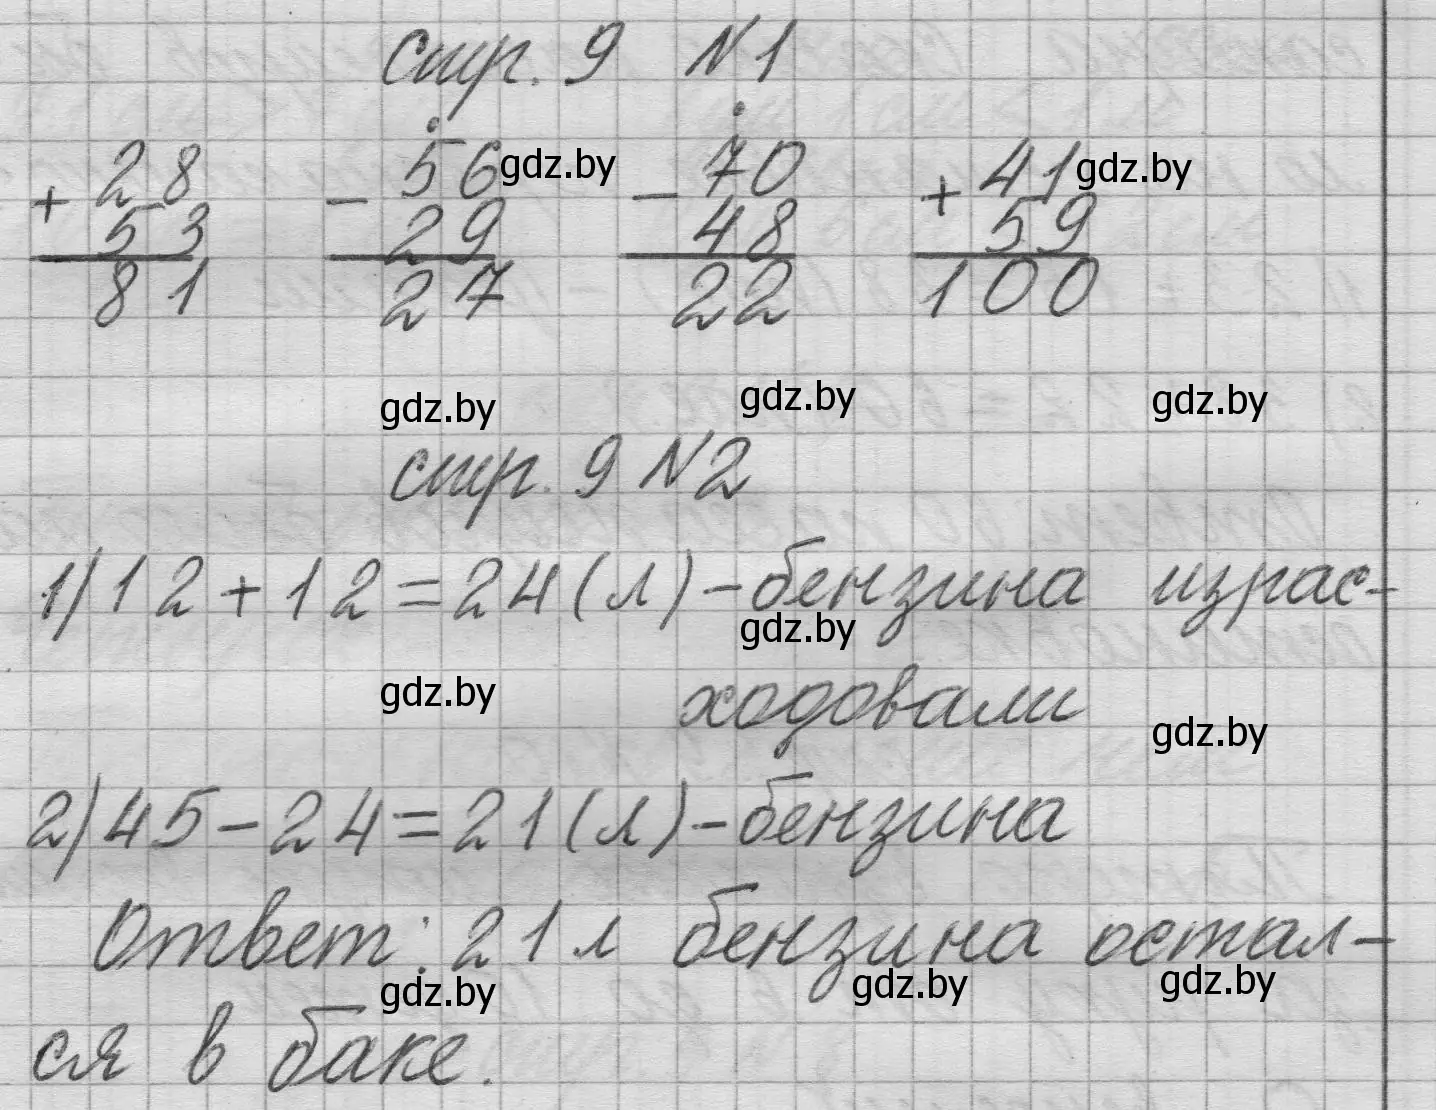 стр. 9 №1
+ 28 - 56 gdz.by - 70 + 41 gdz.by
53 29 48 59
81 27 22 100
gdz.by gdz.by gdz.by
стр. 9 №2
1) 12 + 12 = 24 (л) - бензина израс-
gdz.by
gdz.by ходовали gdz.by
2) 45 - 24 = 21 (л) - бензина
Ответ: 21 л бензина остал-
gdz.by gdz.by gdz.by
ся в баке.